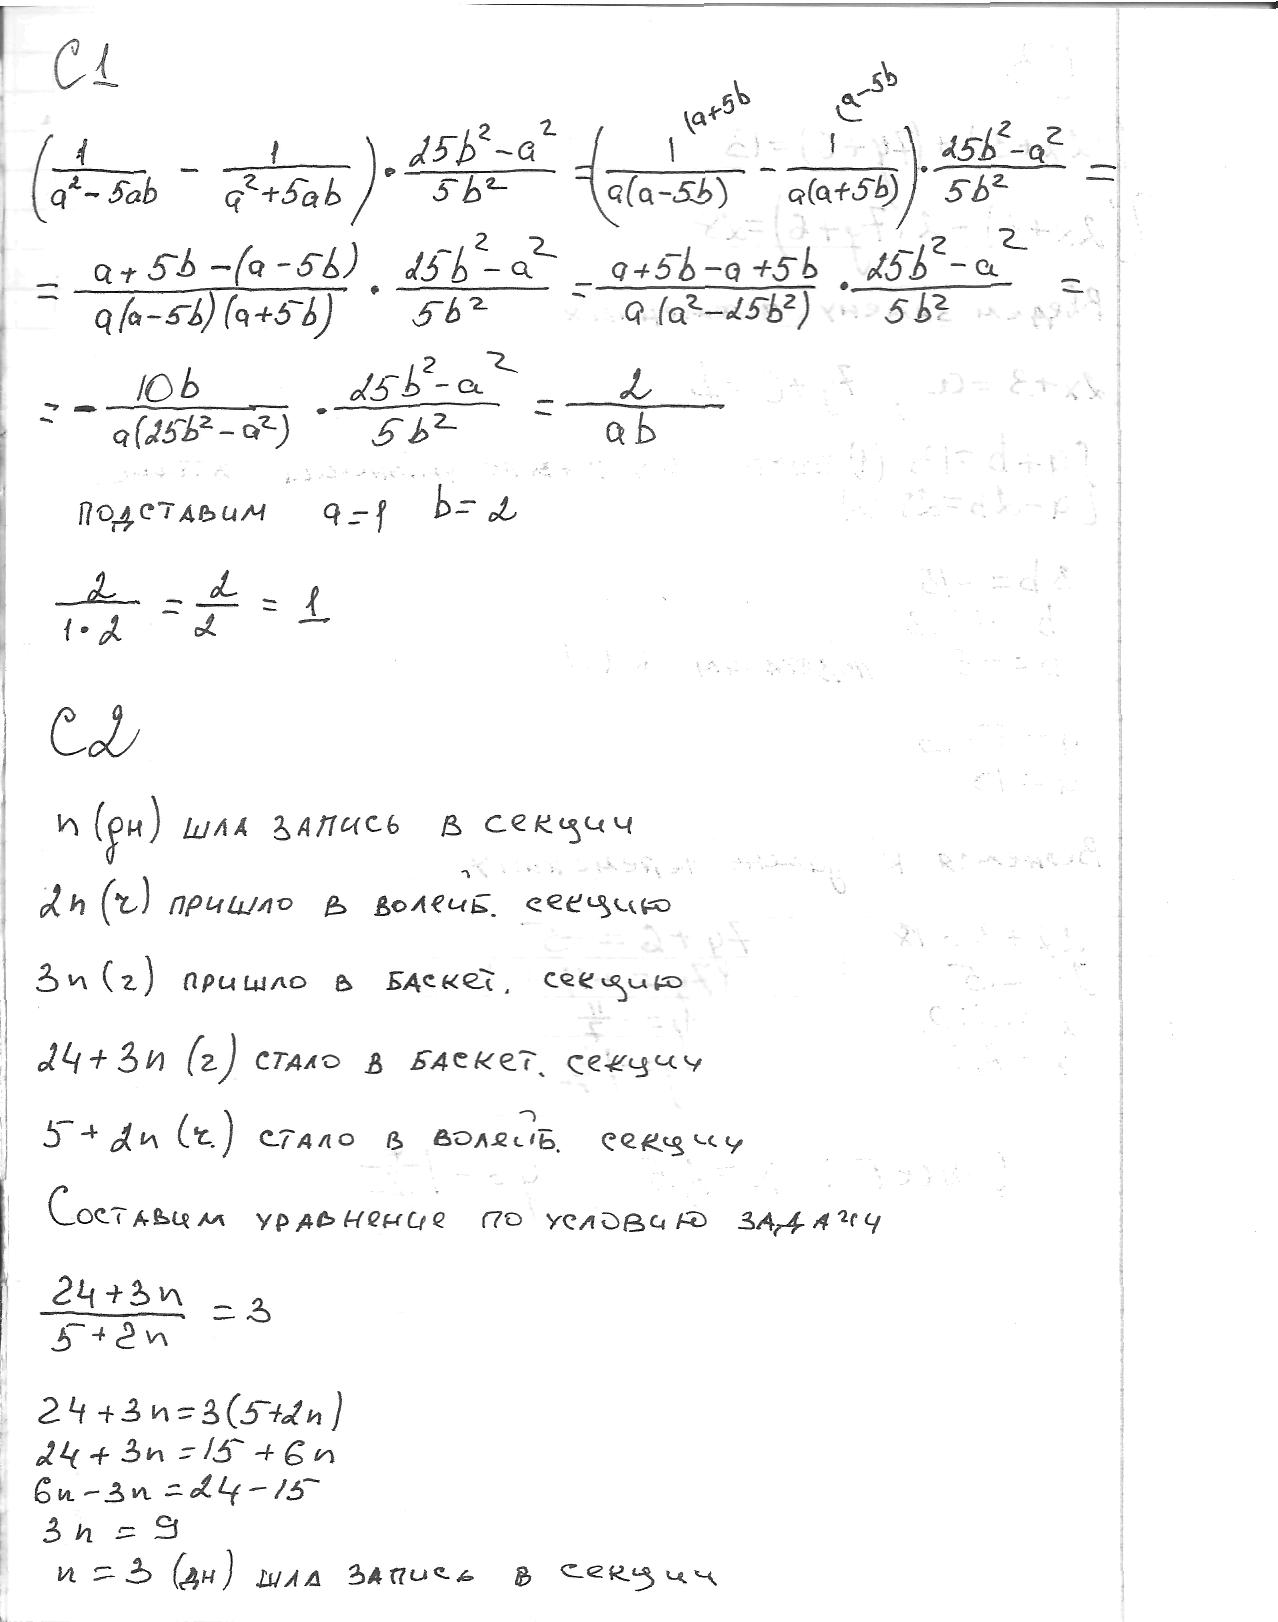 С1
(1/(a²-5ab) - 1/(a²+5ab)) · (25b²-a²)/(5b²) = (1^(a+5b/(a(a-5b)) - 1^(a-5b/(a(a+5b))) · (25b²-a²)/(5b²) =
= (a+5b-(a-5b))/(a(a-5b)(a+5b)) · (25b²-a²)/(5b²) = (a+5b-a+5b)/(a(a²-25b²)) · (25b²-a²)/(5b²) =
= - 10b/(a(25b²-a²)) · (25b²-a²)/(5b²) = 2/(ab)
подставим a=1 b=2
2/(1·2) = 2/2 = 1
С2
n (дн) шла запись в секции
2n (ч) пришло в волейб. секцию
3n (ч) пришло в баскет. секцию
24+3n (ч) стало в баскет. секции
5+2n (ч.) стало в волейб. секции
Составим уравнение по условию задачи
(24+3n)/(5+2n) = 3
24+3n=3(5+2n)
24+3n=15+6n
6n-3n=24-15
3n=9
n=3 (дн) шла запись в секции